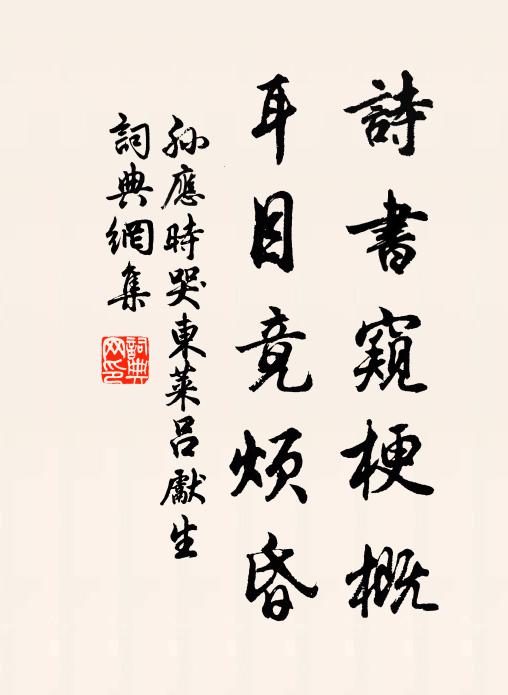 詩書窺梗概
耳目竟煩昏
孫應時哭東萊呂獻生
詞典網集
詞典網印